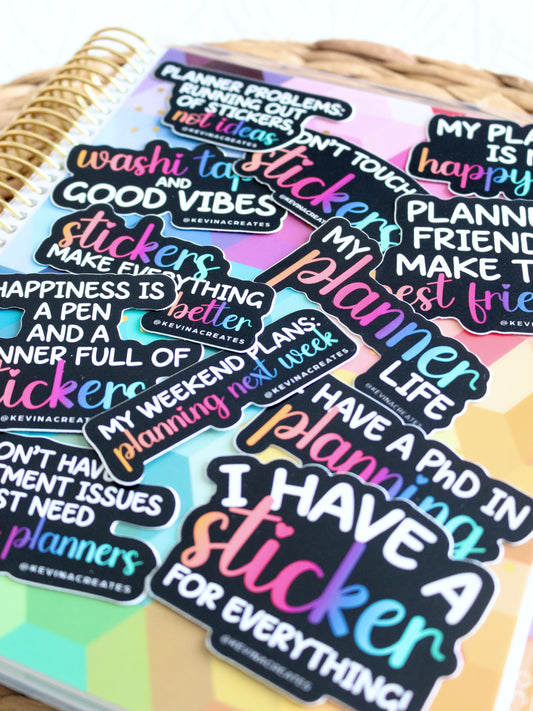 PLANNER PROBLEMS:
RUNNING OUT
OF STICKERS,
not ideas
@KEVINACREATES
MY
IS
happy
washi
AND
GOOD VIBES
@KEVINACREATES
TOUCH
stickers
@KEVINACREATES
FRIEND
MAKE
@KEVINACREATES
stickers
MAKE EVERYTHING
better
@KEVINACREATES
MY
planner
LIFE
@KEVINACREATES
HAPPINESS IS
A PEN
AND A
FULL OF
stickers
@KEVINACREATES
MY WEEKEND PLANS:
planning next week
@KEVINACREATES
HAVE A PhD IN
planning
HAVE
ISSUES
NEED
planners
@KEVINACREATES
I HAVE A
sticker
FOR EVERYTHING!
@KEVINACREATES